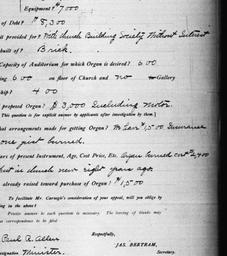 Equipment? $7000
of Debt? $8,300
provided for? With Church Building Society Without Interest
built of? Brick.
Capacity of Auditorium for which Organ is desired? 600
ing 600 on floor of Church and no in Gallery
400
proposed Organ? $3,000 Including Motor.
This question is for explicit answer by applicants after investigation by them.]
hat arrangements made for getting Organ?
one just burned.
ars of present Instrument, Age, Cost Price, Etc. Organ burned cost $2,400
but is church new eight years ago.
already raised toward purchase of Organ? $1,500
To facilitate Mr. Carnegie's consideration of your appeal, will you oblige by
ing in the above?
Precise answer to each question is necessary. The leaving of blanks may
e correspondence to be filed
Respectfully,
JAS. BERTRAM,
Secretary.
Paul R. Allen
esignation Minister.